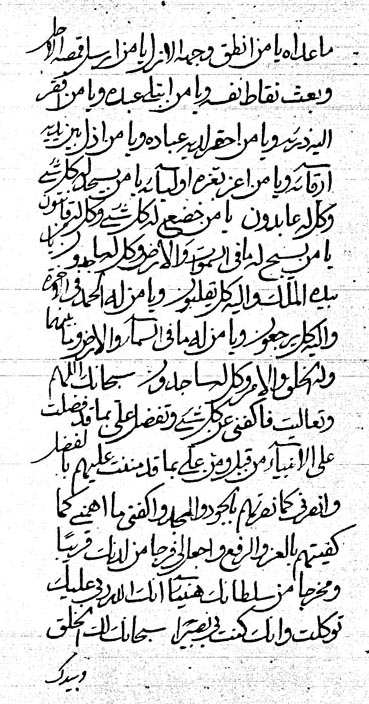 ما عداه یا من انطق وجهه الازل یا من ارسل قمصه
وبعث نقاط نفسه ویا من ابتلی عبده ویا من افقر
الیه ذریته ویا من احقر لدیه عباده ویا من اذل بین یدیه
ارقائه ویا من اعز بعزه اولیائه یا من یسجد له کل شیء
وکل له عابدون یا من خضع له کل شیء وکل له قانتون
یا من یسبح له ما فی السموات والارض وکل له
بیده الملک والیه کل یقلبون ویا من له الحمد فی الاخرة
والیه کل یرجعون ویا من له ما فی السماء والارض وما بینهما
وله الخلق والامر وکل له ساجدون سبحانک اللهم
وتعالیت فاکفنی عن کل شیء وتفضل علی بما قد فضلت
علی الانبیاء من قبل ومن علی بما قد مننت علیهم بالفضل
وانصرنی کما نصرتهم بالجود والمجد واکفنی ما اهمنی کما
کفیتهم بالعز والرفع واجعل لی فرجا من لدنک قریبا
ومخرجا من سلطانک هنیئا انک الله ربی علیک
توکلت وانک کنت بی بصیرا سبحانک لک الخلق
وبیدک